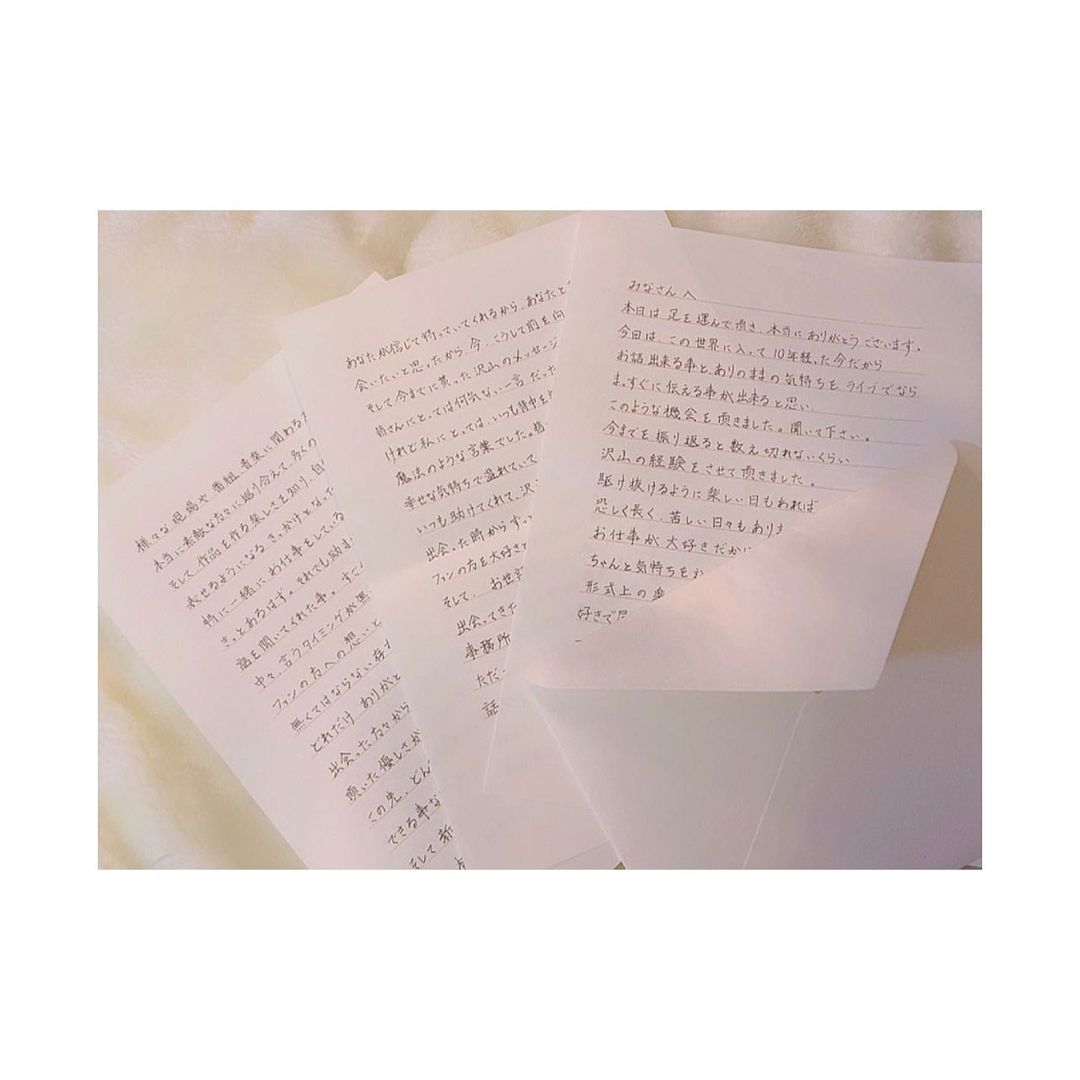 みなさんへ
本日は足を運んで頂き、本当にありがとうございます。
今日は、この世界に入って10年経った今だから
お話出来る事とありのままの気持ちをライブでなら
まっすぐに伝える事が出来ると思い、
このような機会を頂きました。聞いて下さい。
今までを振り返ると数え切れないくらい
沢山の経験をさせて頂きました。
駆け抜けるように楽しい日もあれば
恐しく長く、苦しい日々もあり
お仕事が大好きだか
ちゃんと気持ちを
形式上の
好きで
あなたが信じて待っていてくれるから、あなたと
会いたいと思ったから、今、こうして前を向
そして今までに貰った沢山のメッセージ
皆さんにとっては何気ない一言だった
けれど私にとっては、いつも背中を
魔法のような言葉でした。
幸せな気持ちで溢れていて
いつも助けてくれて、沢
出会った時からずっ
ファンの方を大好きと
そして、お世
出会ってきた
事務所
ただ
話
様々な現場や番組、音楽に関わる
本当に素敵な方々に巡り会えて、多くの
そして、作品を作る楽しさを知り、自
表せるようになるきっかけとなった
特に一緒にお仕事をしている
きっとあるはず。それでも励ま
話を聞いてくれた事。すご
中々、言うタイミングが無
ファンの方への想いと
無くてはならない存
どれだけありがと
出会った方々から
頂いた優しさが
この先、どん
できる事な
そして新